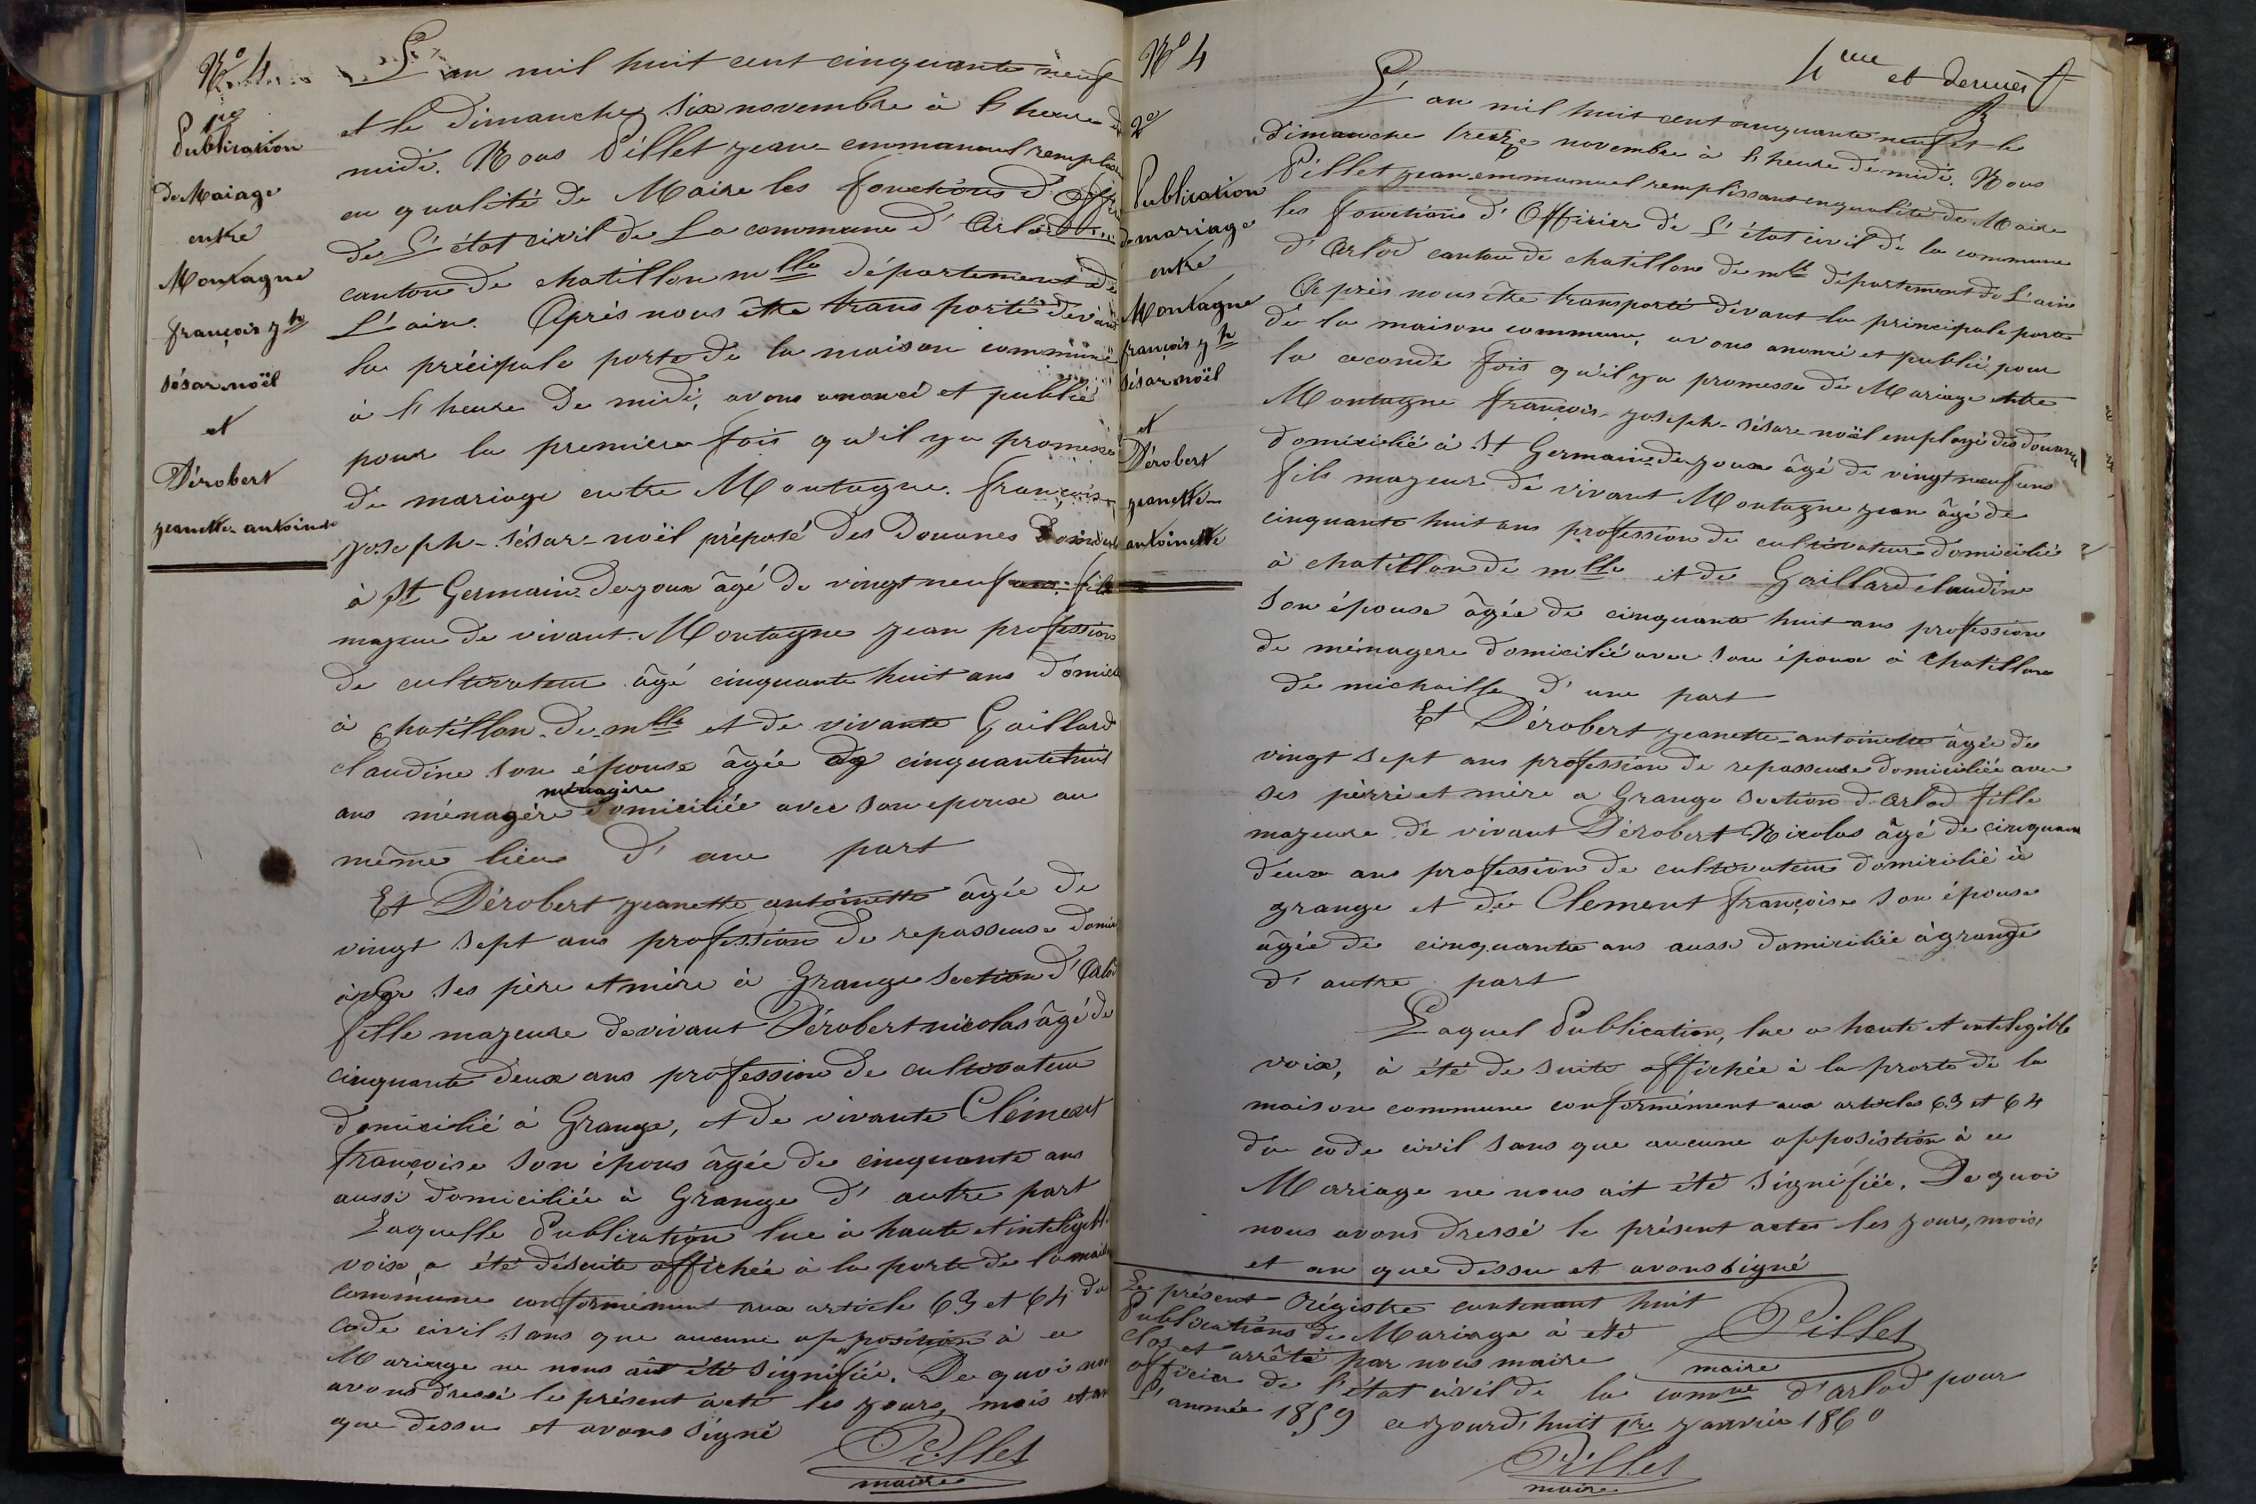 N° 4
1re
Publication
de Maiage
entre
Montagne
françois jh
sésar noël
et
Dérobert
jeanette antoinette
L'an mil huit cent cinquante neuf
et le Dimanche six novembre à l'heure de
midi. Nous Pillet jean-emmanuel remplissant
en qualité de Maire les fonctions d'Officier
de L'état civil de La commune d'Arlod
canton de chatillon mlle département de
L'ain. Après nous être trans porté devant
la précipale porte de la maison commune
à l'heure de midi, avons anoncé et publié
pour la première fois qu'il y a promesse
de mariage entre Montagne françois
joseph-sésar-noël préposé des Douanes Domicilié
à St Germain-de-joux âgé de vingt neuf ans fils
majeur de vivant Montagne jean profession
de cultivateur âgé cinquante huit ans domicilié
à chatillon-de-mlle et de vivante Gaillard
claudine son épouse âgée de cinquante huit
ménagère
ans ménagère domiciliée avec son epoux au
même lieu d'une part
Et Dérobert jeanette antoinette âgée de
vingt sept ans profession de repasseuse domiciliée
avec ses père et mère à Grange section d'Arlod
fille majeure de vivant Dérobert nicolas âgé de
cinquante deux ans profession de cultivateur
domicilié à Grange, et de vivante Clément
françoise son épous âgée de cinquante ans
aussi domiciliée à Grange d'autre part
Laquelle Publication lue à haute et inteligible
voix a été desuite affichée à la porte de la maison
commune conformément aux article 63 et 64 du
code civil sans que aucune opposition à ce
Mariage ne nous ait été signifiée. De quoi nous
avons dressé le présent acte les jours, mois et an
que dessu et avons signé
Pillet
maire
N° 4
2e
Publication
de mariage
entre
Montagne
françois jh
sésar noël
et
Dérobert
jeanette
antoinette
4me et dernier f
L'an mil huit cent cinquante neuf et le
dimanche treize novembre à l'heure de midi. Nous
Pillet jean-emmanuel remplissant en qualité de Maire
les fonctions d'Officier de L'état civil de la commune
d'Arlod canton de chatillon de mlle département de L'ain
Après nous être transporté devant la principale porte
de la maison commune, avons anoncé et publié pour
la seconde fois qu'il y a promesse de Mariage entre
Montagne françois-joseph-sésar-noël employé des douanes
domicilié à St Germain-de-joux âgé de vingt neuf ans
fils majeur de vivant Montagne jean âgé de
cinquante huit ans profession de cultivateur domicilié
à chatillon de mlle et de Gaillard claudine
son épouse âgée de cinquante huit ans profession
de ménagere domicilié avec son époux à Chatillon
de michaille d'une part
Et Dérobert jeanette-antoinette âgée de
vingt sept ans profession de repasseuse domiciliée avec
ses pèrre et mère a Grange section d'Arlod fille
majeure de vivant Dérobert Nicolas âgé de cinquante
deux ans profession de cultivateur domicilié à
grange et de Clement françoise son épouse
âgée de cinquante ans aussi domiciliée à grange
d'autre part
Laquel Publication, lue a haute et intelegible
voix, à été de suite affichée à la prorte de la
maison commune conformément aux articles 63 et 64
du code civil sans que aucune opposistion à ce
Mariage ne nous ait été signifiée. De quoi
nous avons dressé le présent actes les jours, mois,
et an que dessu et avons signé
Pillet
maire
Le présent Régistre contenant huit
Publications de Mariage à été
Clos et arrêté par nous maire
officier de l'état civil de la comune d'arlod pour
l'année 1859 ce jourd'huit 1re janvier 1860
Pillet
maire